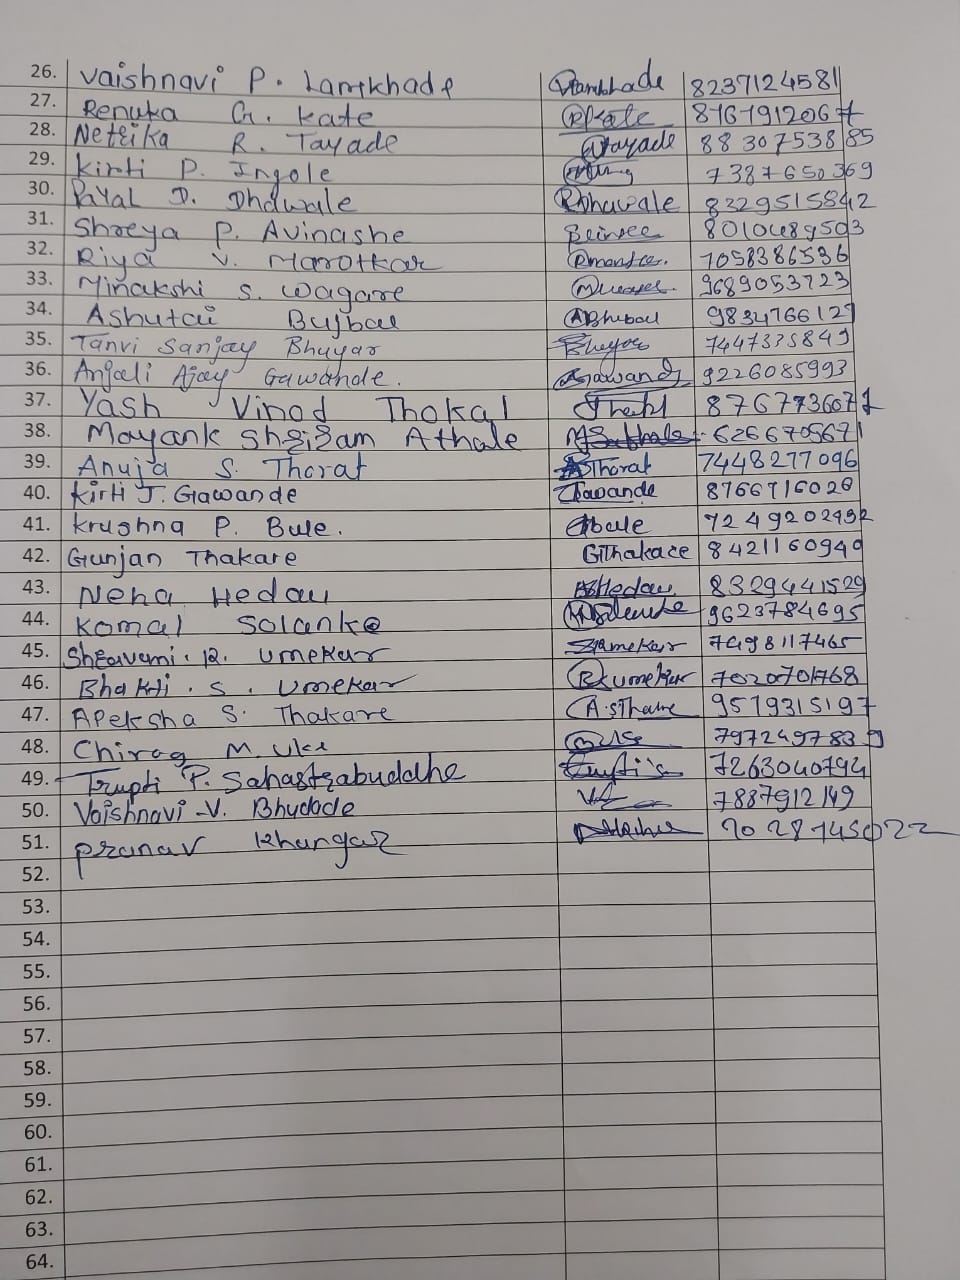 26. Vaishnavi P. Lamkhade 8237124581
27. Renuka G. Kate 8767912067
28. Netrika R. Tayade Tayade 8830753885
29. Kirti P. Ingole 7387650369
30. Payal D. Dhawale Dhawale 8329515842
31. Shreya P. Avinashe 8010489503
32. Riya V. Marotkar 7058386536
33. Minakshi S. Wagare 9689053723
34. Ashutai Bujbal
35. Tanvi Sanjay Bhuyar 7447335849
36. Anjali Ajay Gawande. Gawande 9226085993
37. Yash Vinod Thokal
38. Mayank Shriram Athale 6266705671
39. Anuja S. Thorat Thorat 7448277096
40. Kirti J. Gawande 8766716028
41. Krushna P. Bule. 7249202492
42. Gunjan Thakare GThakare 8421160940
43. Neha Hedau Hedau 8329441529
44. Komal Solanke 9623784695
45. Shravani. R. Umekar 7498117465
46. Bhakti. S. Umekar 7020701768
47. Apeksha S. Thakare 9579315197
48. Chirag M. Uke 7972497839
49. Trupti P. Sahastrabuddhe 7263040794
50. Vaishnavi V. Bhudade 7887912149
51. Pranav Khangar
52.
53.
54.
55.
56.
57.
58.
59.
60.
61.
62.
63.
64.